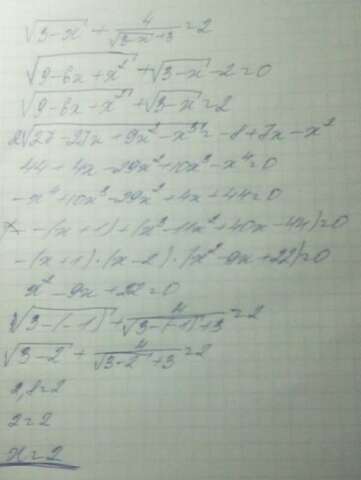 √3-x + 4/√3-x+3 = 2
√9-6x+x² + √3-x - 2 = 0
√9-6x+x² + √3-x = 2
2√27-27x+9x²-x³ = -8+7x-x²
44+4x-29x²+10x³-x⁴=0
-x⁴+10x³-29x²+4x+44=0
-(x+1)·(x³-11x²+40x-44)=0
-(x+1)·(x-2)·(x²-9x+22)=0
x²-9x+22=0
√3-(-1) + 4/√3-(-1)+3 = 2
√3-2 + 4/√3-2+3 = 2
2,8=2
2=2
x=2